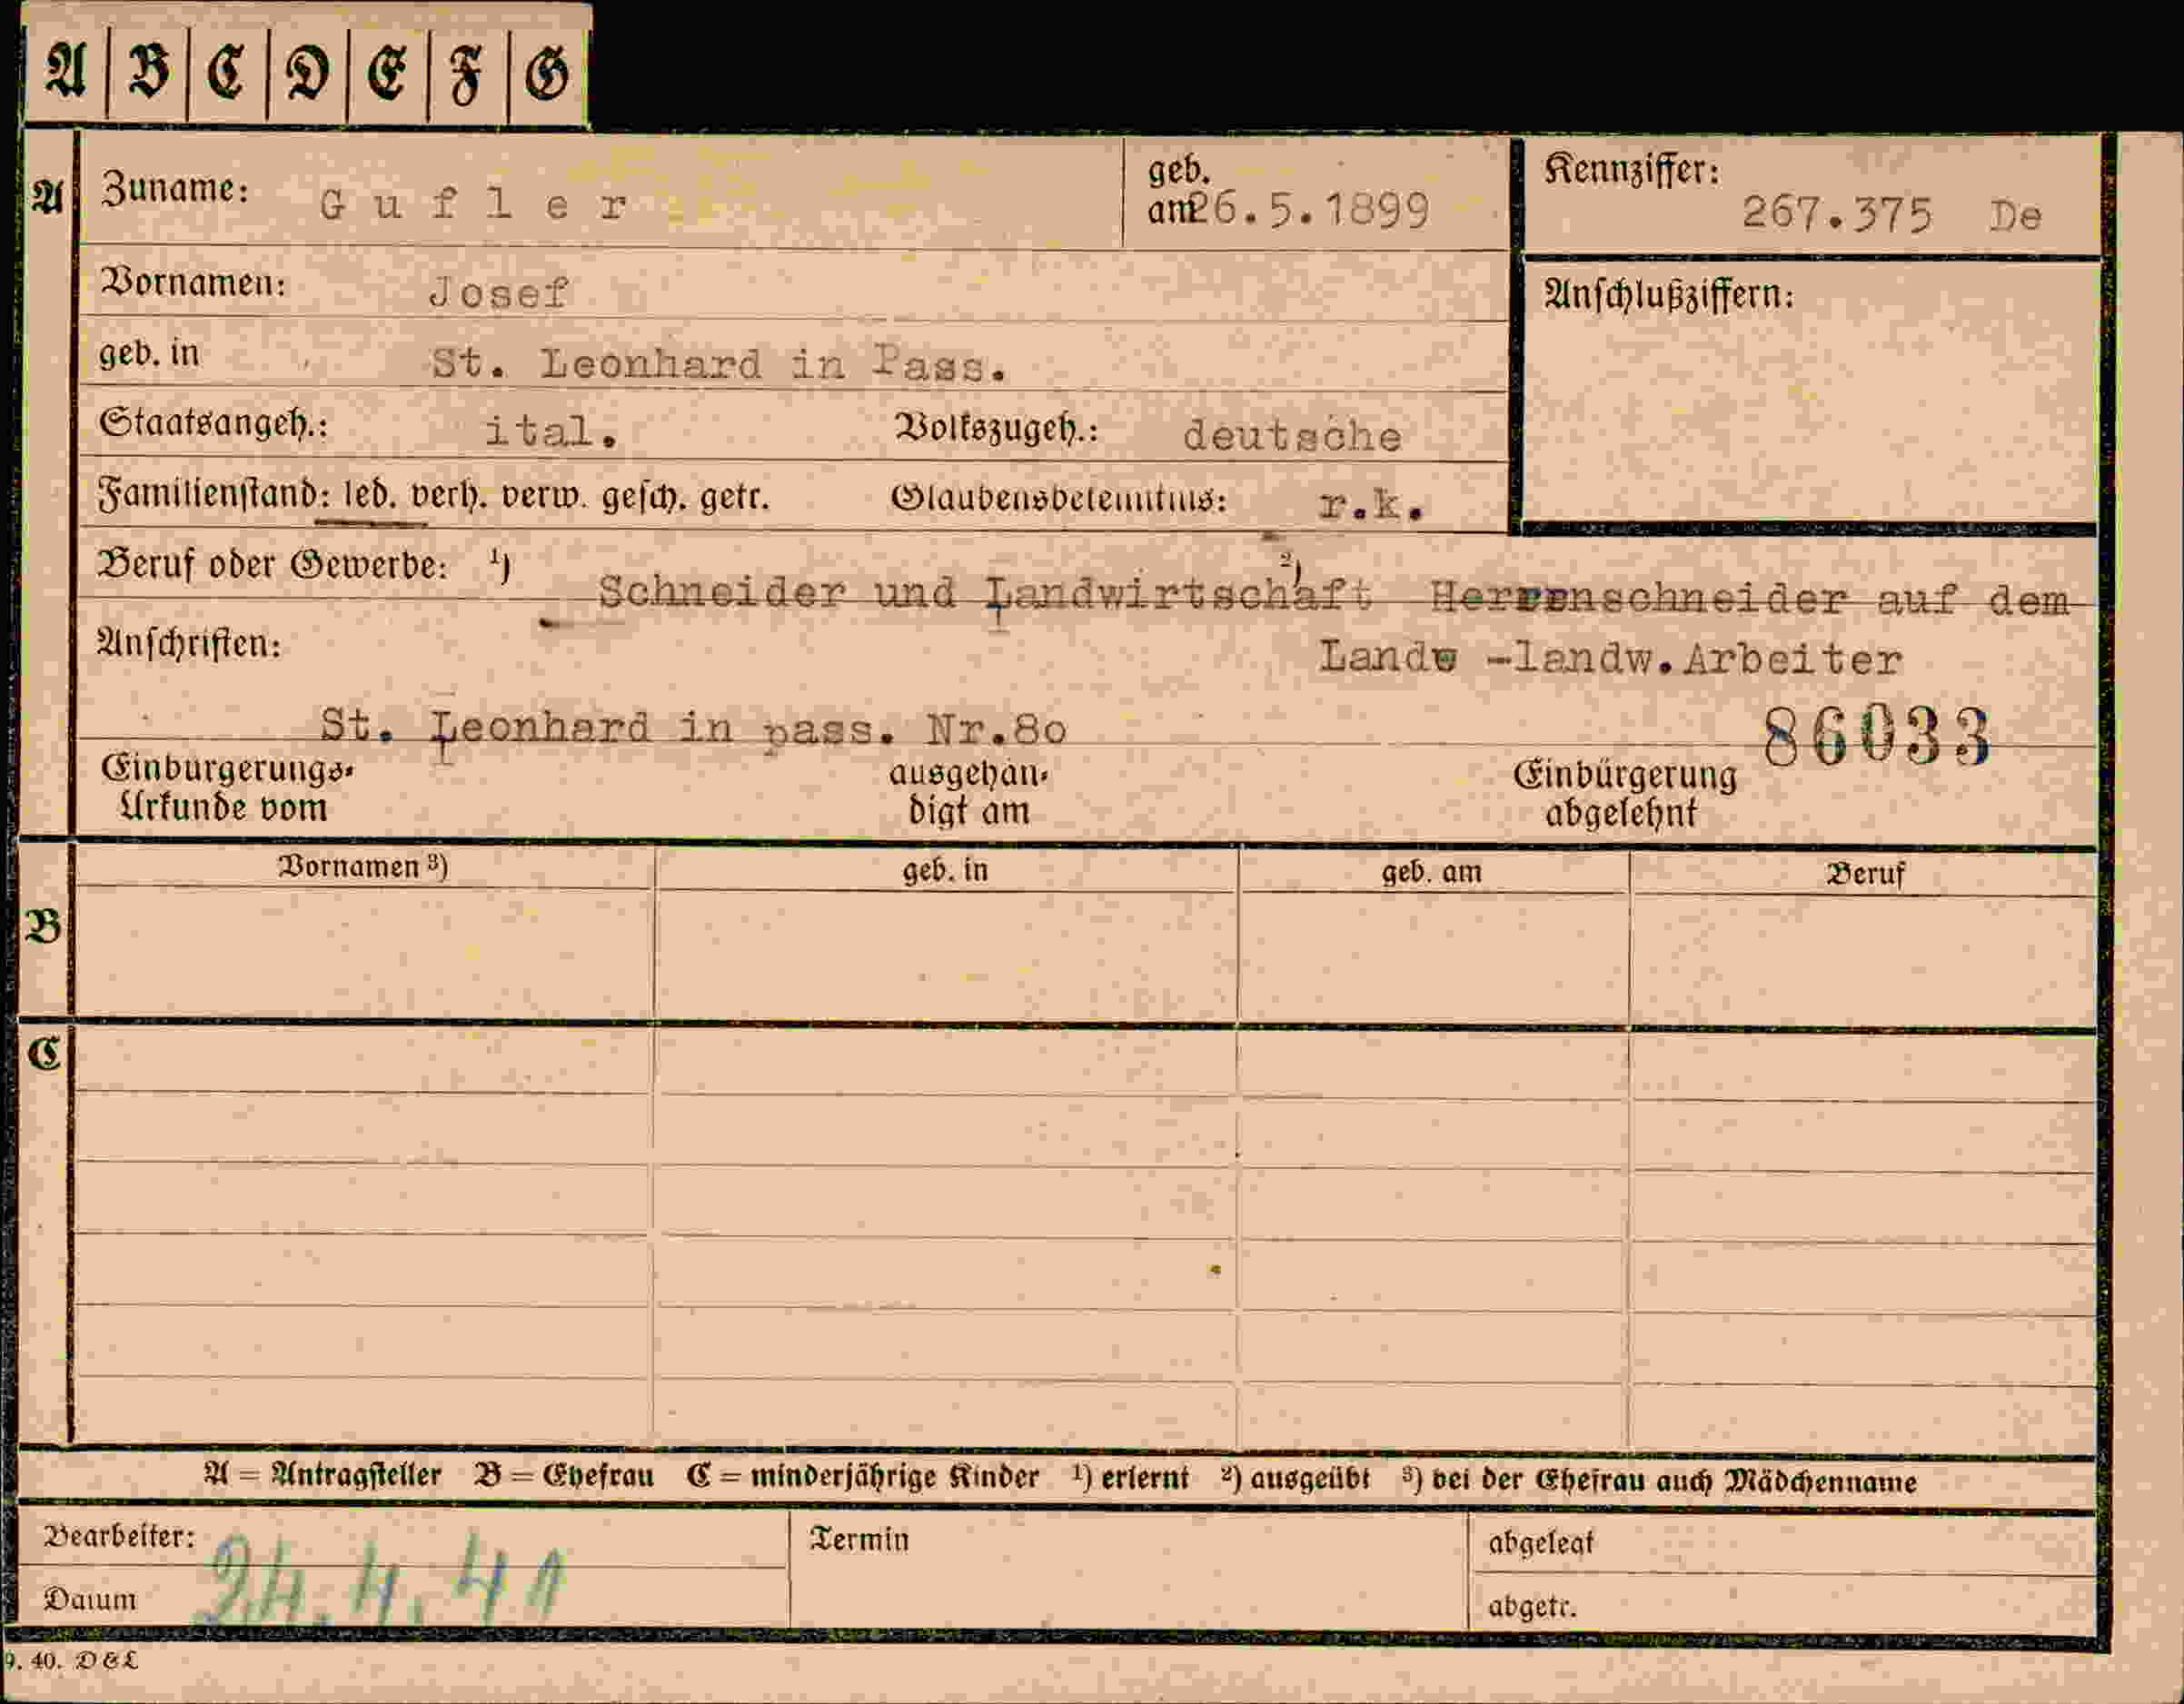 A B C D E F G
A Zuname: Gufler geb. am 26.5.1899 Kennziffer: 267.375 De
Vornamen: Josef Anschlußziffern:
geb. in St. Leonhard in Pass.
Staatsangeh.: ital. Volkszugeh.: deutsche
Familienstand: led. verh. verw. gesch. getr. Glaubensbekenntnis: r.k.
Beruf oder Gewerbe: 1) Schneider und Landwirtschaft 2) Herrenschneider auf dem
Lande -landw.Arbeiter
Anschriften:
St. Leonhard in pass. Nr.80
86033
Einbürgerungs-
Urkunde vom
ausgehän-
digt am
Einbürgerung
abgelehnt
Vornamen 3) geb. in geb. am Beruf
B
C
A = Antragsteller B = Ehefrau C = minderjährige Kinder 1) erlernt 2) ausgeübt 3) bei der Ehefrau auch Mädchenname
Bearbeiter: Termin abgelegt
Datum 24.4.41 abgetr.
9. 40. D & L